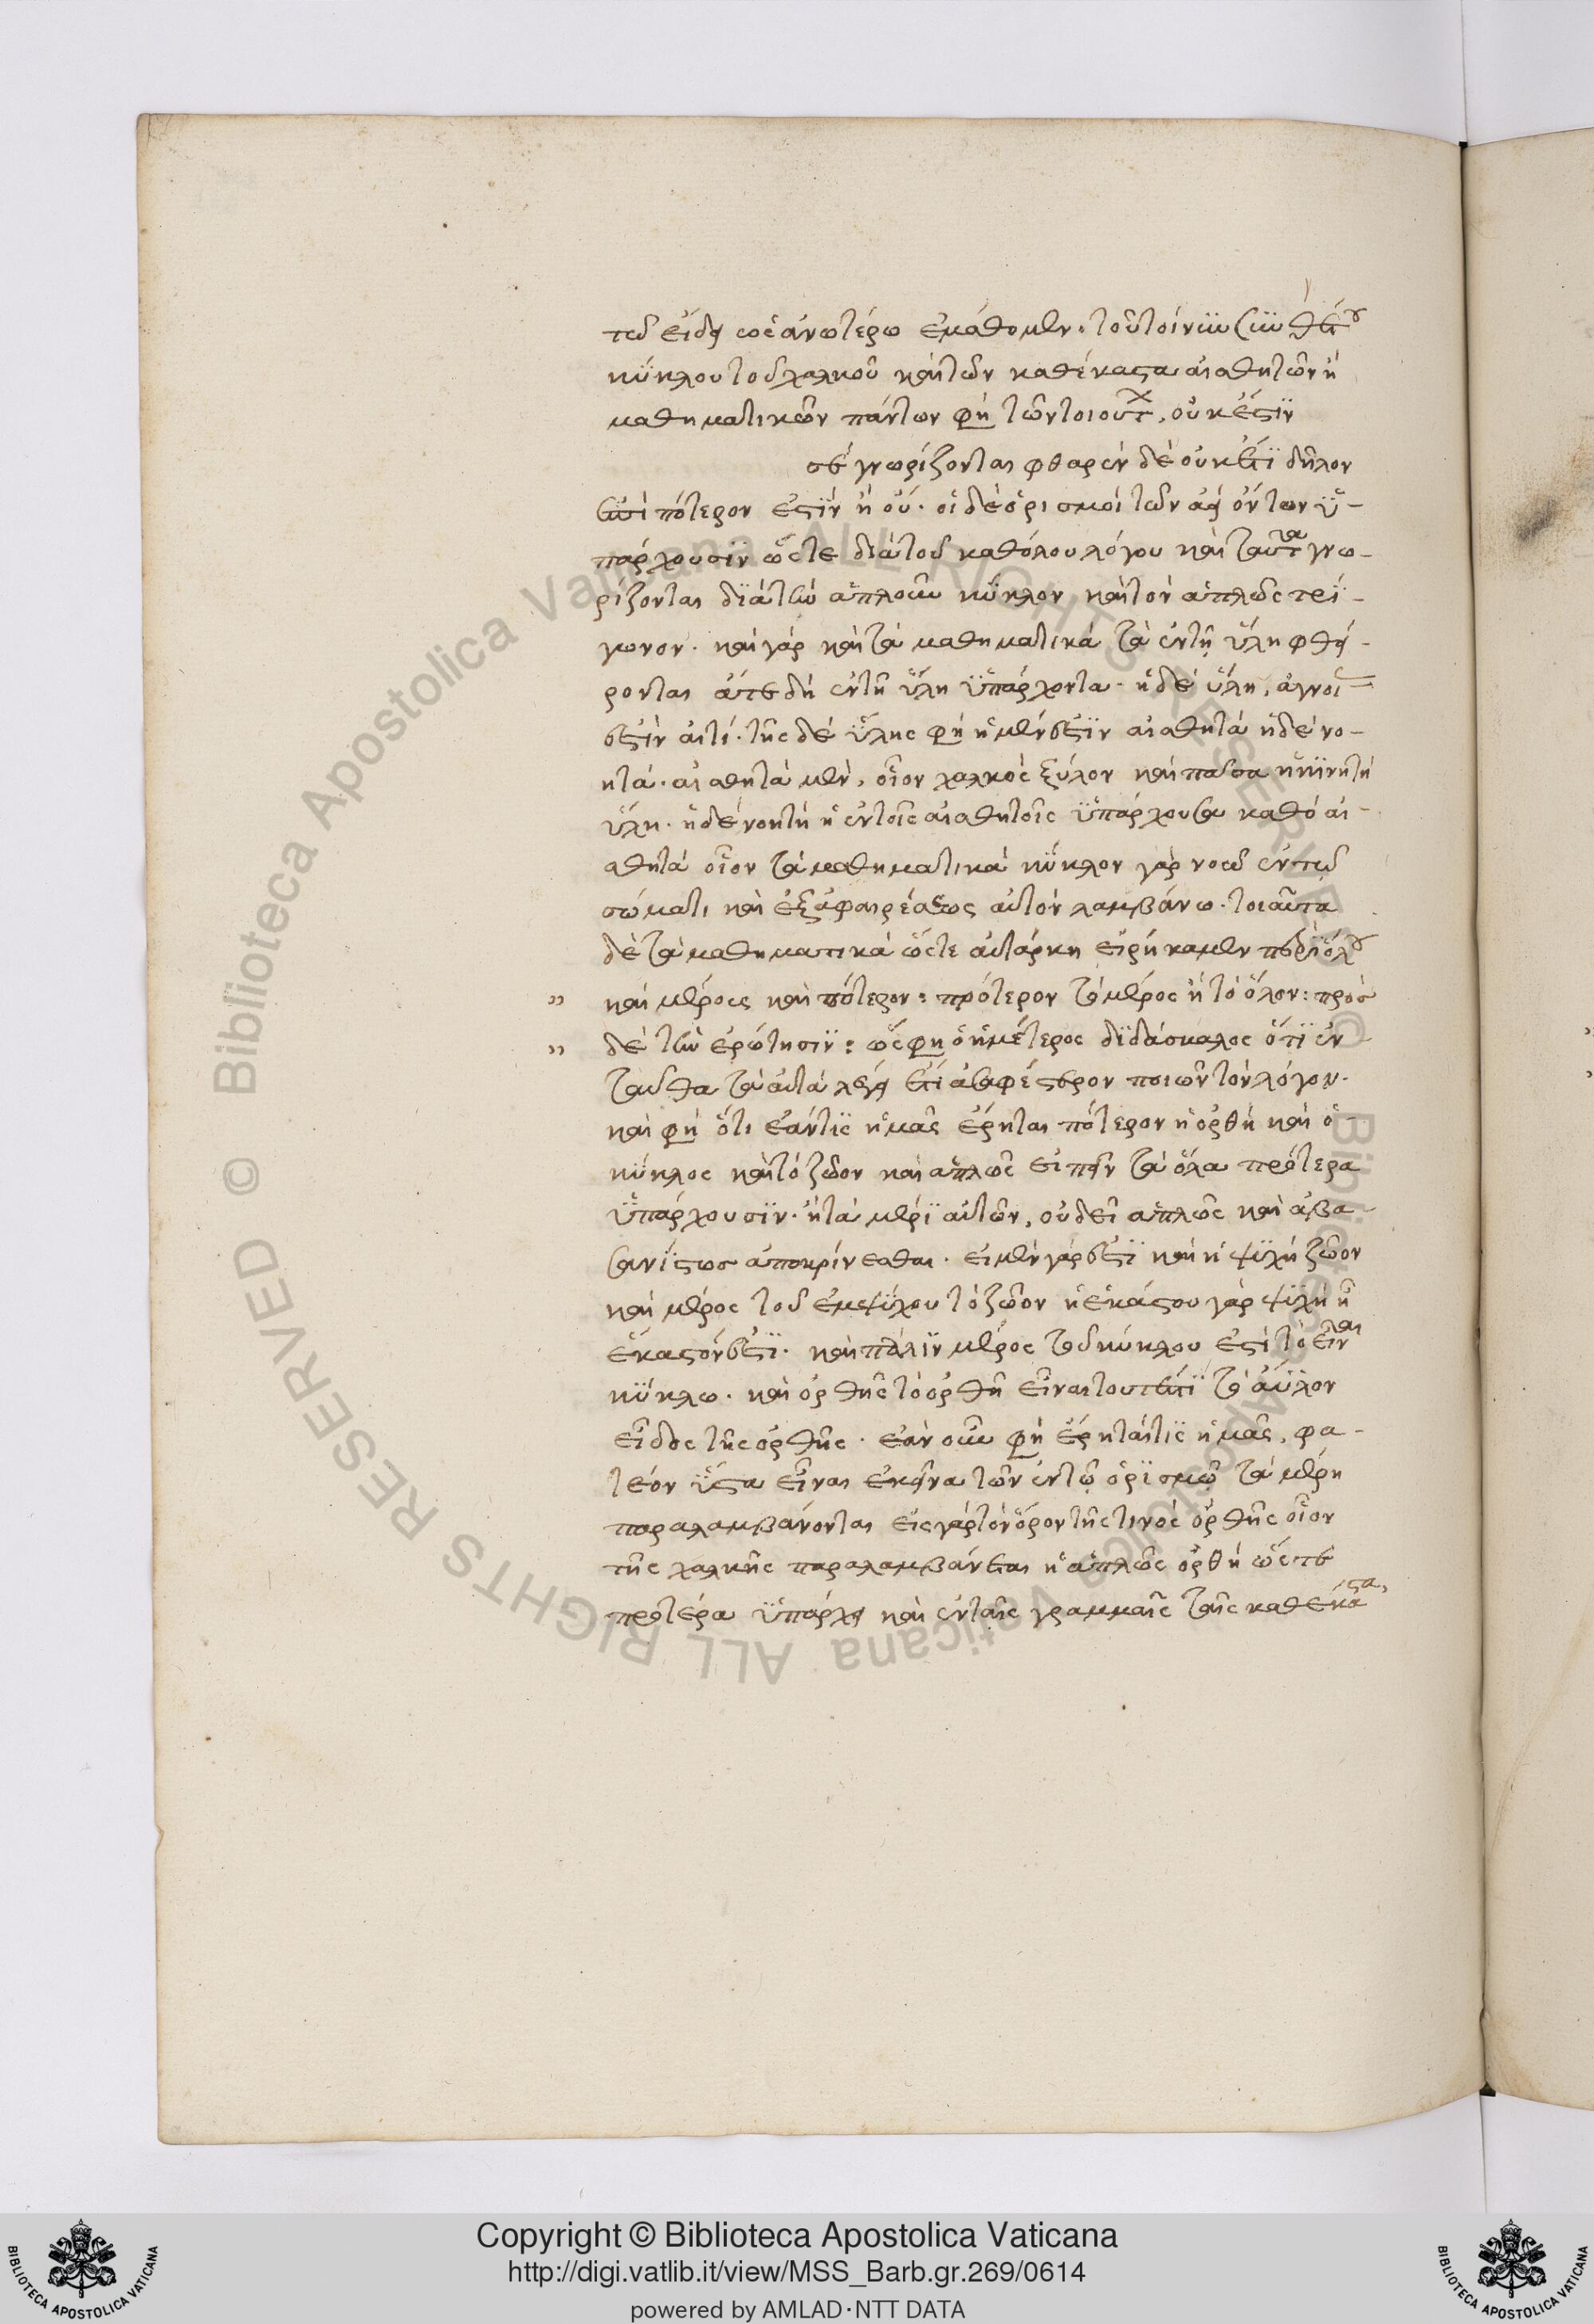 τῶ εἴδει ὡς ἀνωτέρω ἐμάθομεν. τοῦ τοίνυν συνθέτου
κύκλου τοῦ χαλκοῦ καὶ τῶν καθέκαστα αἰσθητῶν ἢ
μαθηματικῶν πάντων φη τῶν τοιούτ, οὐκ ἔστιν
γνωρίζονται φθαρὲν δὲ οὐκέτι δῆλον
ἐστὶ πότερον ἐστὶν ἢ οὔ. οἱ δὲ ὁρισμοὶ τῶν ἀεὶ ὄντων ὑ-
πάρχουσιν ὥστε διὰ τοῦ καθόλου λόγου καὶ ταῦτα γνω-
ρίζονται διὰ τὸν ἁπλοῦν κύκλον καὶ τὸν ἁπλῶς τρί-
γωνον. καὶ γὰρ καὶ τὰ μαθηματικὰ τὰ ἐν τῇ ὕλη φθεί-
ρονται ἅτε δὴ ἐν τῇ ὕλη ὑπάρχοντα. ἡ δὲ ὕλη, ἄγνωστος
ἐστὶν αὐτή. τῆς δὲ ὕλης φη ἡ μὲν ἐστὶν αἰσθητὰ ἡ δὲ νο-
ητά. αἰσθητὰ μὲν, οἷον χαλκὸς ξύλον καὶ πᾶσα ἡ κινητὴ
ὕλη. ἡ δὲ νοητὴ ἡ ἐν τοῖς αἰσθητοῖς ὑπάρχουσα καθὸ αἰ-
σθητὰ οἷον τὰ μαθηματικὰ κύκλον γὰρ νοῶ ἐν τῶ
σώματι καὶ ἐξ ἀφαιρέσεως αὐτὸν λαμβάνω. τοιαῦτα
δὲ τὰ μαθηματικὰ ὥστε αὐτάρκη εἰρήκαμεν περὶ ὅλου
" καὶ μέρους καὶ πότερον: πρότερον τὸ μέρος ἢ τὸ ὅλον: πρὸς
" δὲ τὴν ἐρώτησιν: ὥς φη ὁ ἡμέτερος διδάσκαλος ὅτι ἐν
ταῦθα τὰ αὐτὰ λέγει ἔτι σαφέστερον ποιῶν τὸν λόγον.
καὶ φη ὅτι ἐάν τις ἡμᾶς ἔρηται πότερον ἡ ὀρθὴ καὶ ὁ
κύκλος καὶ τὸ ζῶον καὶ ἁπλῶς εἰπεῖν τὰ ὅλα πρότερα
ὑπάρχουσιν. ἢ τὰ μέρι αὐτῶν, οὐ δεῖ ἁπλῶς καὶ ἀβα
σανίστως ἀποκρίνεσθαι. εἰ μὲν γὰρ ἐστὶ καὶ ἡ ψυχὴ ζῶον
καὶ μέρος τοῦ ἐμψύχου τὸ ζῶον ἡ ἑκάστου γὰρ ψυχὴ ἢ
ἕκαστόν ἐστι. καὶ πάλιν μέρος τοῦ κύκλου ἐστὶ τὸ εἶναι
κύκλω. καὶ ὀρθῆς τὸ ὀρθῆ εἶναι τουτέστι τὸ ἄϋλον
εἶδος τῆς ὀρθῆς. ἐὰν οὖν φη ἔρηταί τις ἡμᾶς, φα-
τέον ὕστα εἶναι ἐκεῖνα τῶν ἐν τῶ ὁρισμῶ τὰ μέρη
παραλαμβάνονται εἰς γὰρ τὸν ὅρον τῆς τινὸς ὀρθῆς οἷον
τῆς χαλκῆς παραλαμβάνεται ἡ ἁπλῶς ὀρθὴ ὥστε
προτέρα ὑπάρχει καὶ ἐν ταῖς γραμμαῖς ταῖς καθέκαστα,
Copyright © Biblioteca Apostolica Vaticana
http://digi.vatlib.it/view/MSS_Barb.gr.269/0614
powered by AMLAD·NTT DATA
BIBLIOTECA APOSTOLICA VATICANA
BIBLIOTECA APOSTOLICA VATICANA
Biblioteca Apostolica Vaticana ALL RIGHTS RESERVED ©
Biblioteca Apostolica Vaticana ALL RIGHTS RESERVED ©